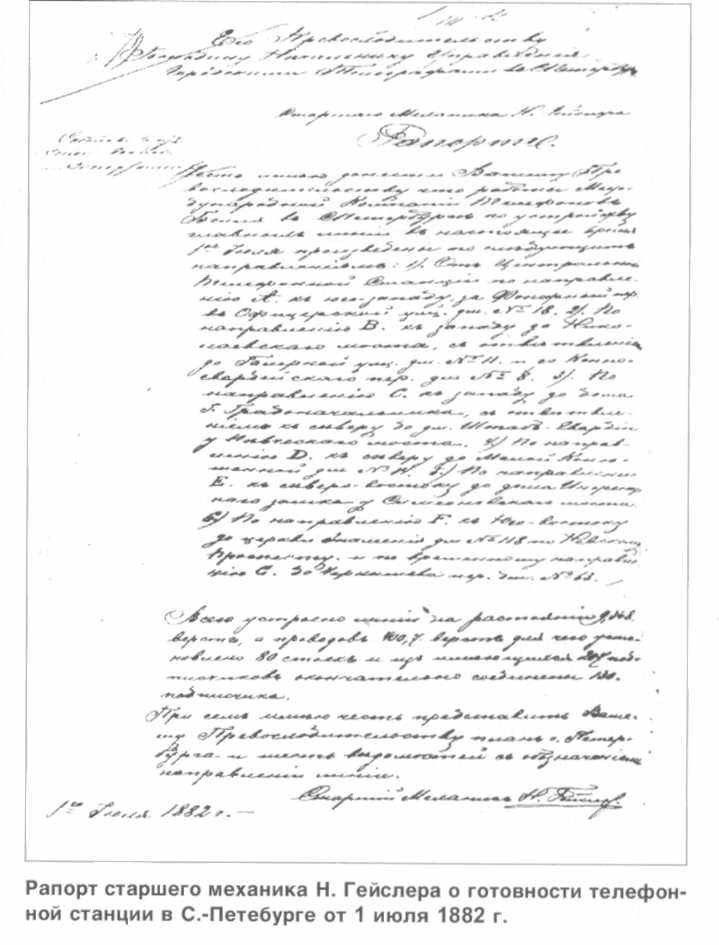 Его Превосходительству
Господину Начальнику Управления
Городскими Телеграфами въ С.Петербур
Старшаго Механика Н. Гейслера
Рапортъ.
Честь имѣю донести Вашему Пре
восходительству что работы Меж
дународной Компаніи Телефоновъ
Белля въ С.Петербургѣ по устройству
главныхъ линій въ настоящее время
1го Іюля произведены по слѣдующимъ
направленіямъ: 1). Отъ Центральной
Телефонной Станціи по направле-
нію А. къ юго-западу за Фонарный пр.
въ Офицерской улиц. дм. № 18. 2). По
направленію B. къ западу до Нико-
лаевскаго моста, съ отвѣтвленіемъ
до Галерной улиц. дм. № 11. и до Конно-
гвардейскаго пер. дм № 8. 3). По
направленію C. къ западу до дома
Г. Градоначальника, съ отвѣтвле-
ніемъ къ сѣверу до дм. Штаба Гвардіи
у Пѣвческаго моста. 4) По направ-
ленію D. къ сѣверу до Малой Коню-
шенной дм № 5.) По направленію
E. къ сѣверо-востоку до дома Инженер
наго замка у Симеоновскаго моста.
6) По направленію F. къ Юго-востоку
до церкви Знаменія дм № 118 по Невскому
Проспекту. и по временному направле
нію G. до Чернышева пер. дм. №
Всего устроено линій на разстояніи
верста, а проводовъ 100,7. верстъ для чего уста-
новлено 80 стоекъ и изъ имѣющихся под-
писчиковъ окончательно соединены
подписчика.
При семъ имѣю честь представить Ваше-
му Превосходительству планъ г. Петер-
бурга и шесть вѣдомостей съ обозначеніемъ
направленій линіи.
Старшій Механикъ Н. Гейслеръ
1го Іюля 1882 г. –
Рапорт старшего механика Н. Гейслера о готовности телефон-
ной станции в С.-Петебурге от 1 июля 1882 г.